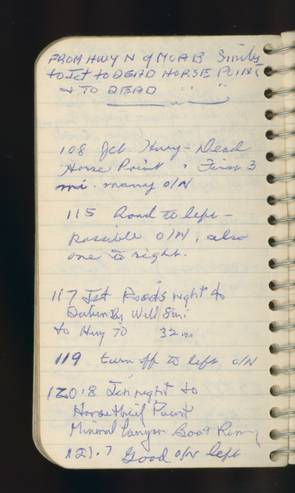 FROM HWY N of MOAB
to Jct to DEAD HORSE POINT
+ TO DEAD
108 Jct Hwy - Dead
Horse Point. First 3
mi. many O/N
115 Road to left -
possible O/N, also
one to right.
117 Jct Roads right to
Dubinky Well 5mi
to Hwy 70 32 m
119 turn off to left O/N
120.8 Jct right to
Horsethief Point
Mineral Canyon Boat Ramp
121.7 Good O/N left